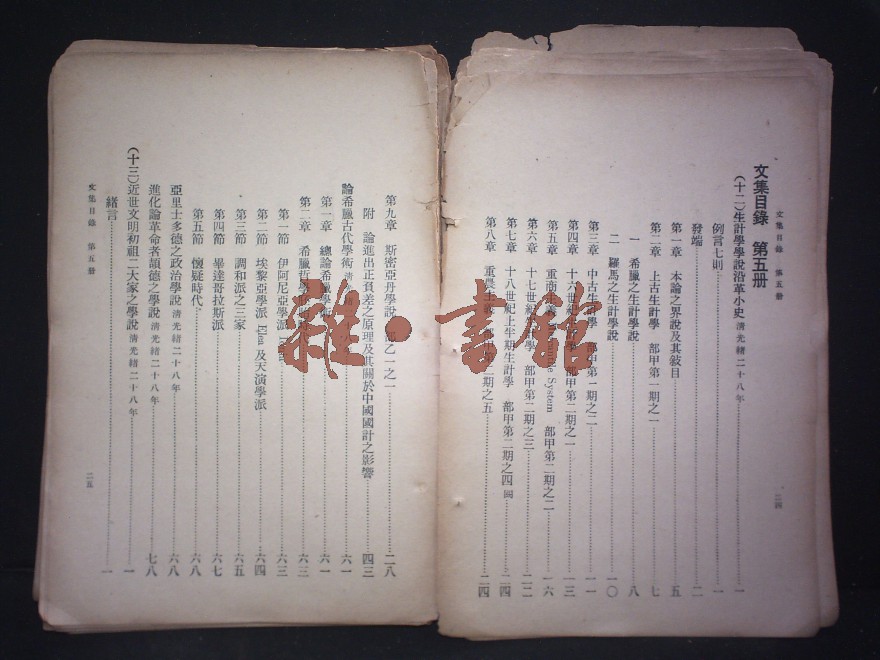 文集目錄 第五册
二四
文集目錄 第五册
(十二)生計學學說沿革小史 清光緒二十八年 一
例言七則 一
發端 二
第一章 本論之界說及其敍目 五
第二章 上古生計學 部甲第一期之一 七
一 希臘之生計學說 八
二 羅馬之生計學說 一〇
第三章 中古生計學 部甲第一期之二 一一
第四章 十六世紀生計學 部甲第二期之一 一三
第五章 重商主義 System 部甲第二期之二 一六
第六章 十七世紀生計學 部甲第二期之三 二二
第七章 十八世紀上半期生計學 部甲第二期之四 闕 二四
第八章 重農主義 第二期之五 二四
第九章 斯密亞丹學說 部乙一之一 二八
附 論進出正負差之原理及其關於中國國計之影響 四三
論希臘古代學術 清光緒 六一
第一章 總論希臘學術 六一
第二章 希臘哲學 六三
第一節 伊阿尼亞學派 六三
第二節 埃黎亞學派 Elea 及天演學派 六四
第三節 調和派之三家 六五
第四節 畢達哥拉斯派 六七
第五節 懷疑時代 六八
亞里士多德之政治學說 清光緒二十八年 六八
進化論革命者頡德之學說 清光緒二十八年 七八
(十三)近世文明初祖二大家之學說 清光緒二十八年 一
緒言 一
文集目錄 第五册
二五
雜·書館